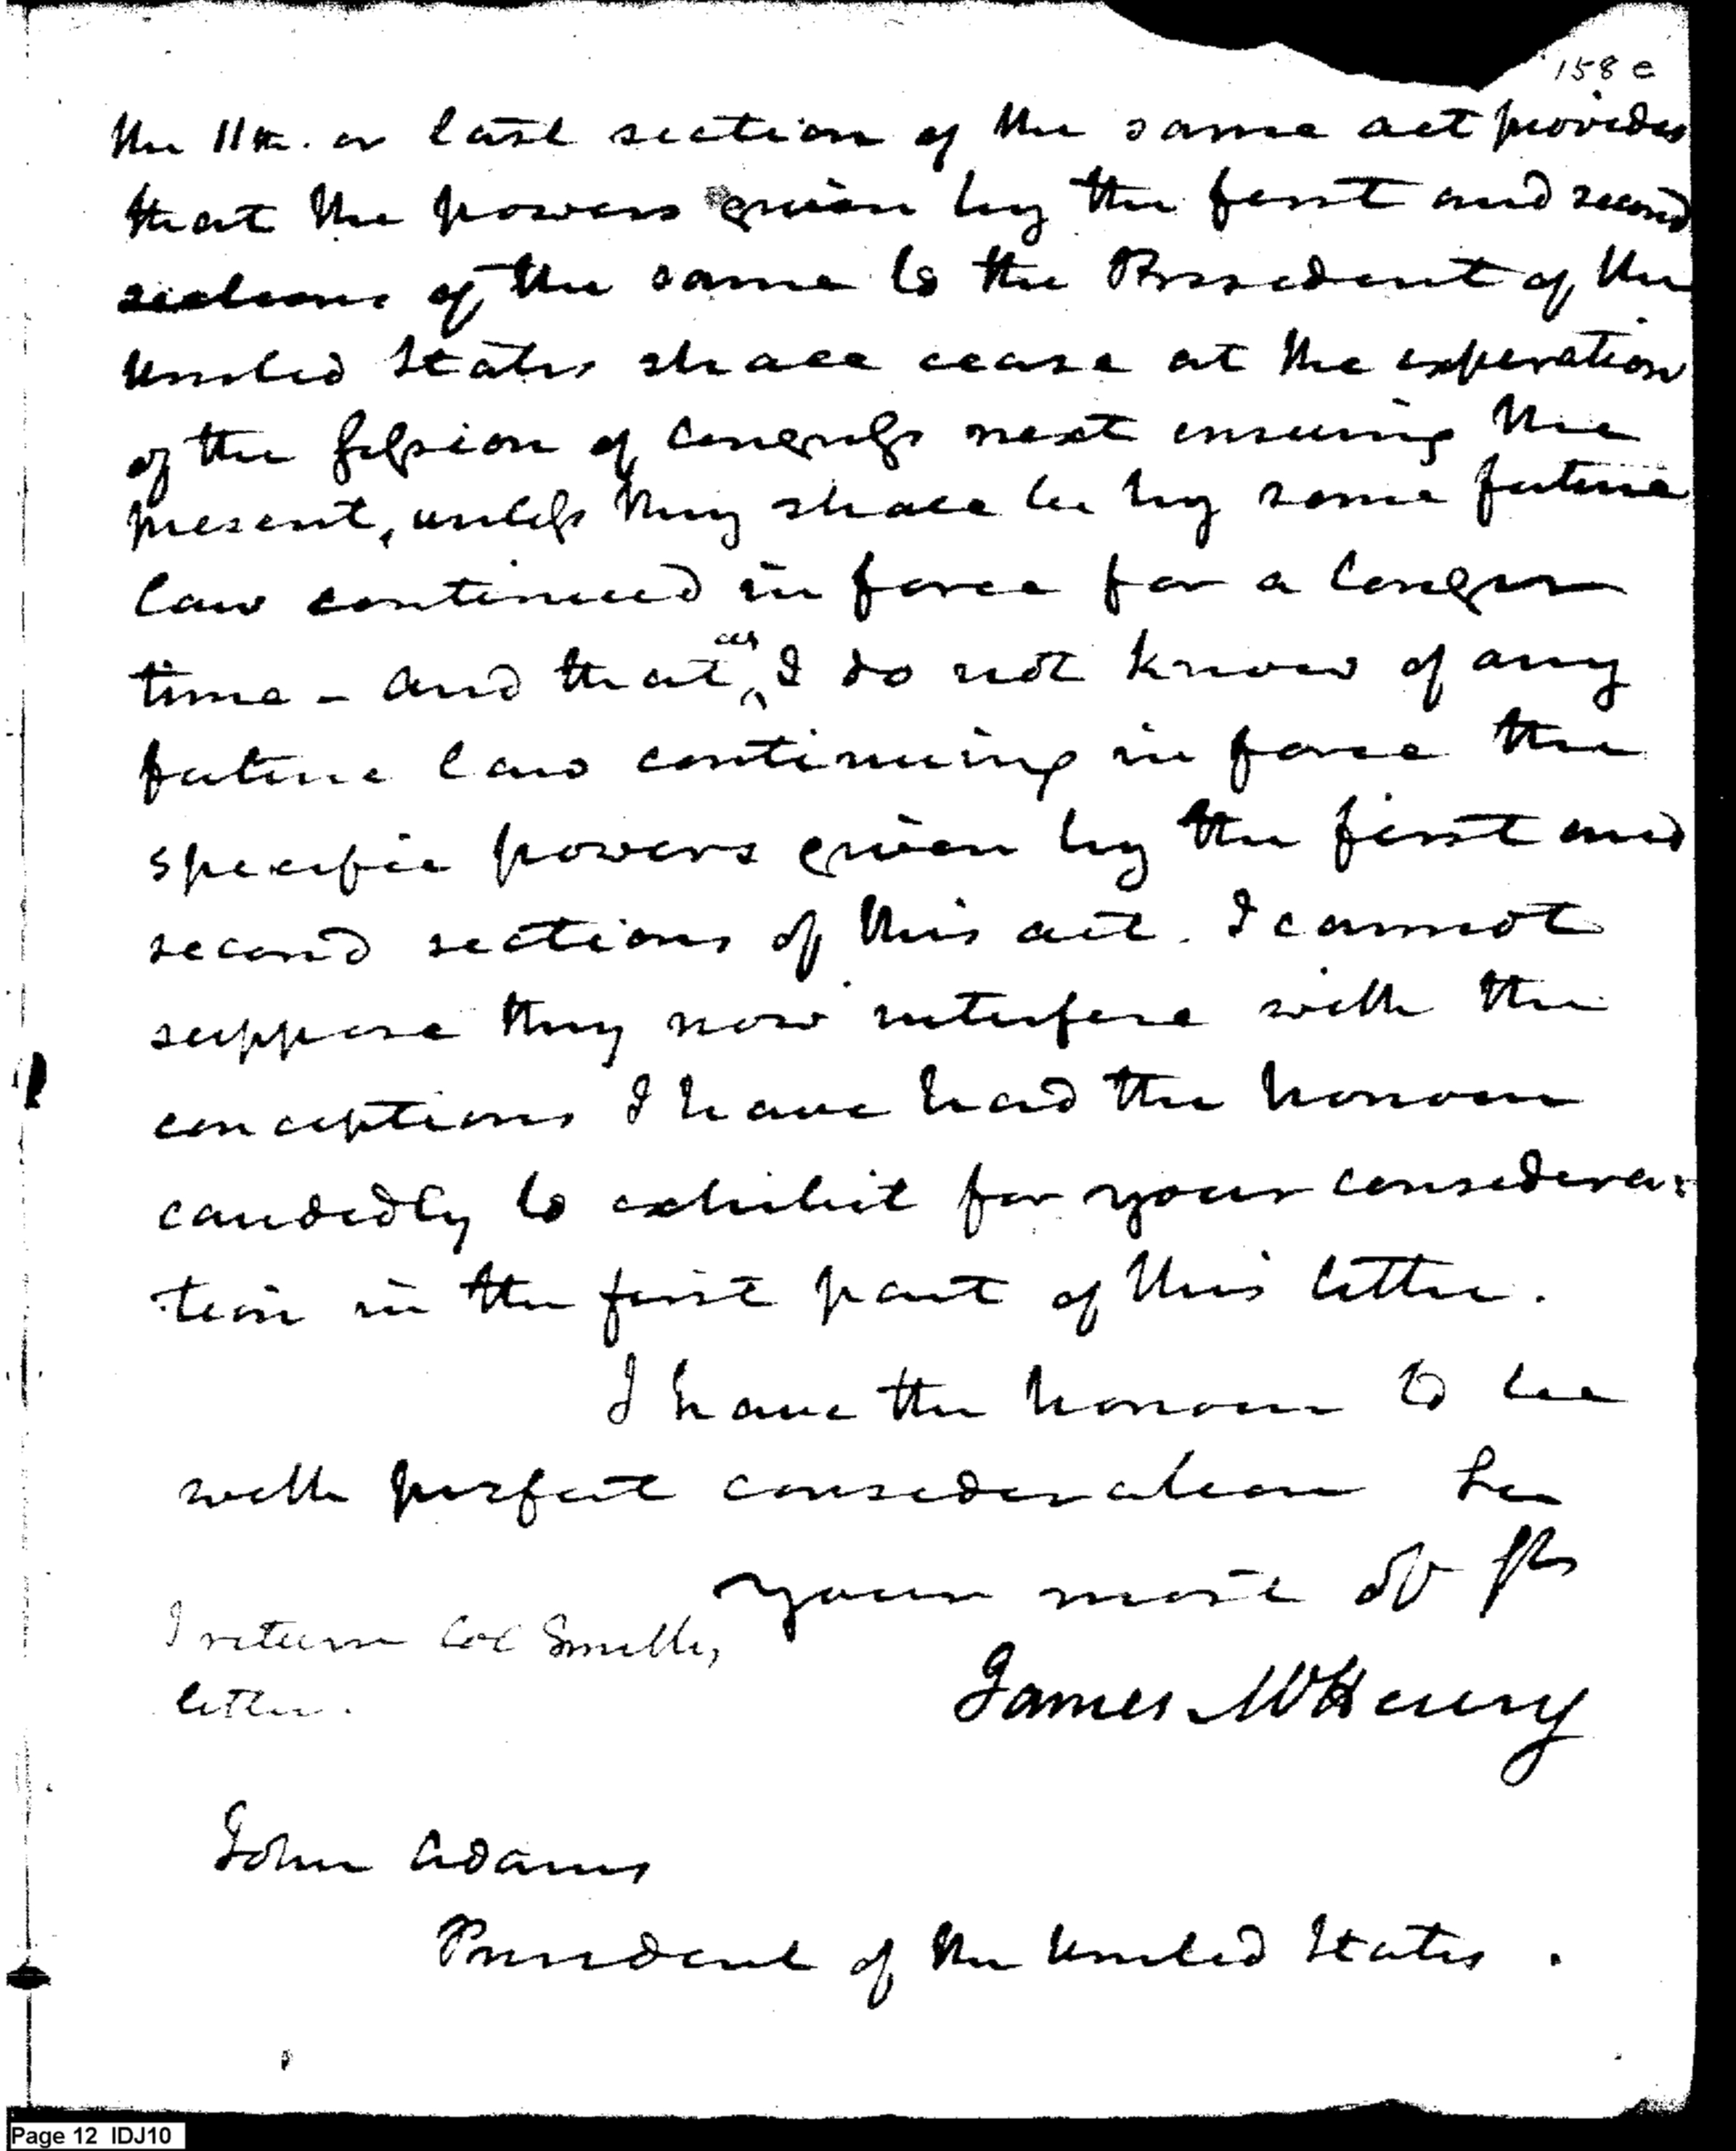 158 e
the 11th. or last section of the same act provides
that the powers given by the first and second
sections of the same to the President of the
United States shall cease at the experation
of the session of Congress next ensuing the
present, unless they shall be by some future
law continued in force for a longer
time - and that as I do not know of any
future law continuing in force the
specific powers given by the first and
second sections of this act. I cannot
suppose they now interfere with the
conceptions I have had the honour
candidly to exhibit for your considera:
tion in the first part of this letter.
I have the honour to be
with perfect consideration Sir
your most ob st
I return Col Smith,
letter.
James McHenry
John Adams
President of the United States.
Page 12 IDJ10